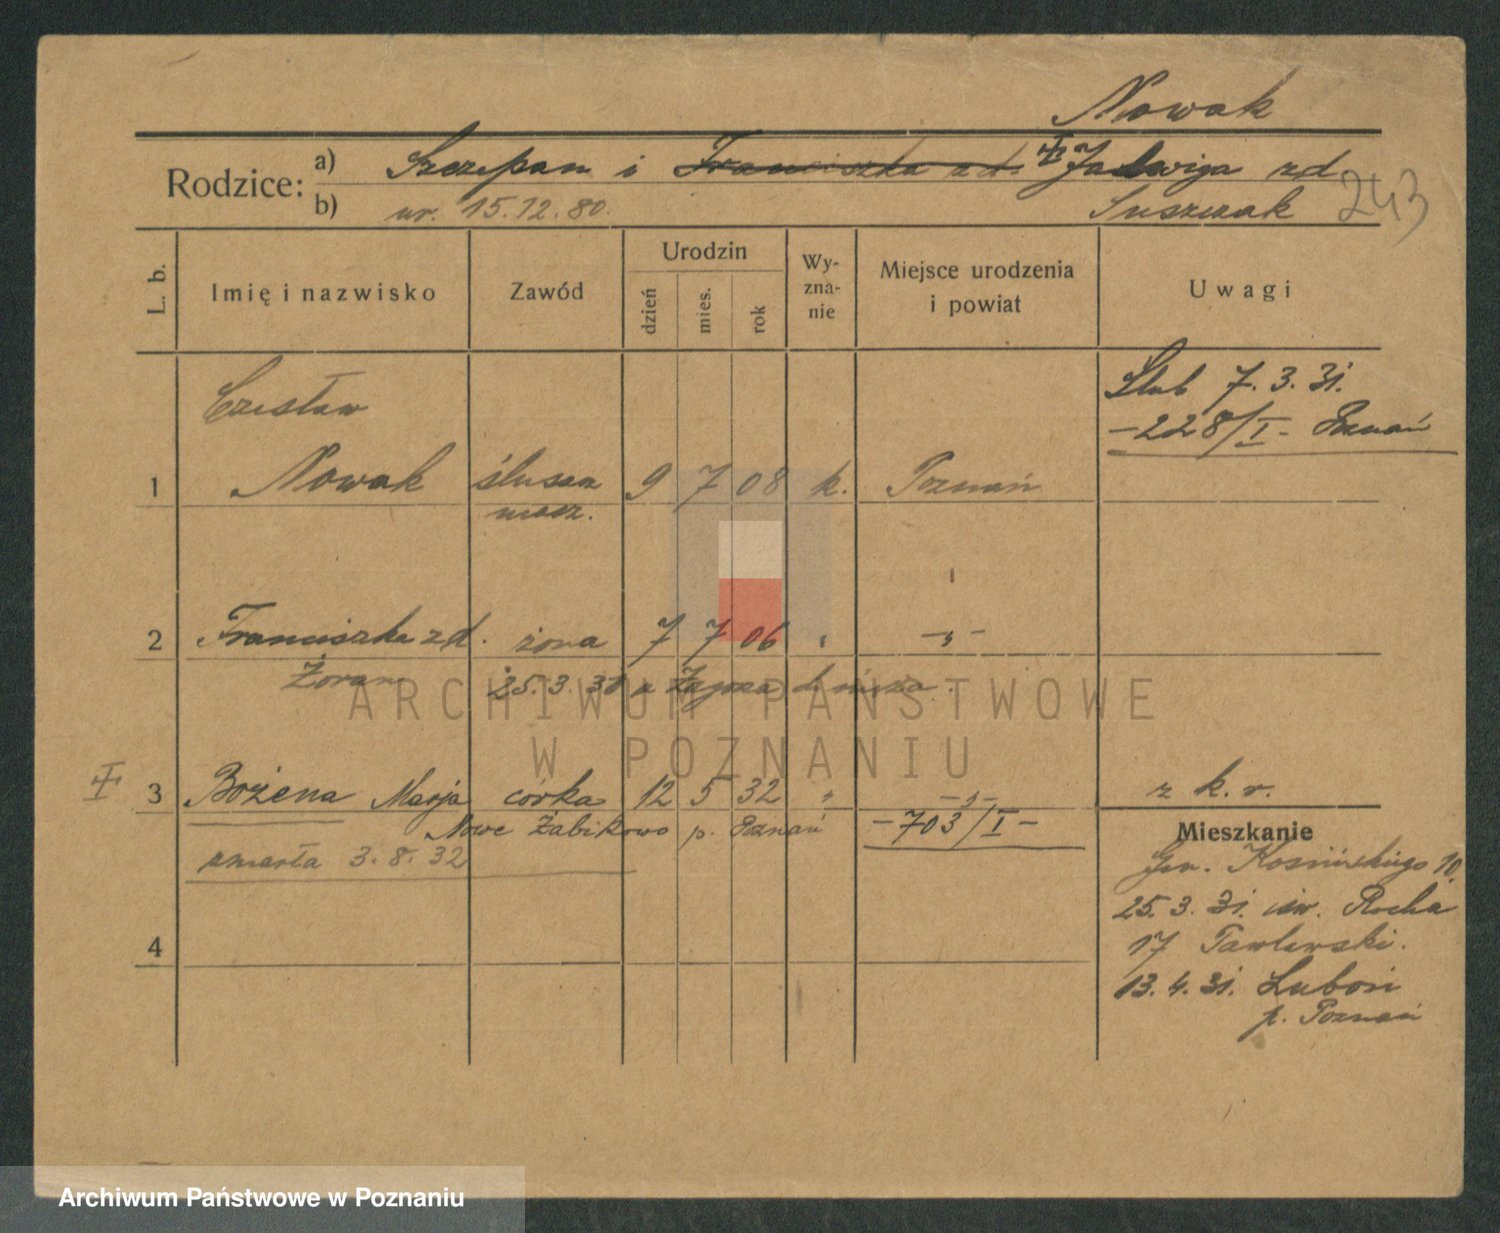 Nowak
Rodzice: a) Szczepan i Franciszka zd. Jadwiga zd
b) ur. 15.12.80. Suszczak 243
L. b. Imię i nazwisko Zawód Urodzin dzień mies. rok Wyznanie Miejsce urodzenia i powiat Uwagi
Ślub 7.3.31.
-228/I- Poznań
Czesław
1 Nowak ślusarz 9 7 08 k. Poznań
masz.
2 Franciszka zd. żona 7 7 06 " -"-
Żoran 25.3.31 z
3 Bożena Marja córka 12 5 32 " -"- z k. r.
Nowe Żabikowo p. Poznań -703/I-
zmarła 3.8.32
Mieszkanie
Gen. Kosińskiego 10.
25.3.31. św. Rocha
17 Pawlewski.
4
13.4.31. Luboń
p. Poznań
ARCHIWUM PAŃSTWOWE
W POZNANIU
Archiwum Państwowe w Poznaniu